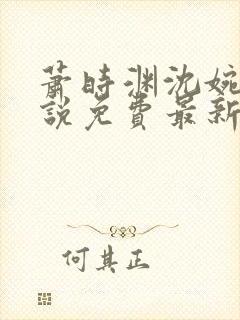 萧时渊沈婉
说免费最新
何其正